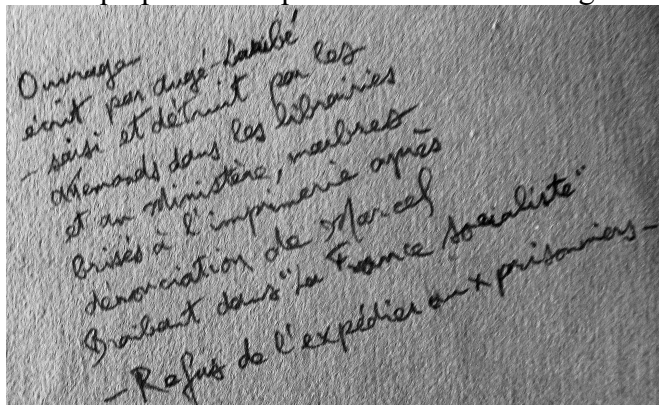 Ouvrage
écrit par Augé-Laribé
- saisi et détruit par les
allemands dans les librairies
et au Ministère, marbres
brisés à l'imprimerie après
dénonciation de Marcel
Braibant dans "La France Socialiste"
- Refus de l'expédier aux prisonniers -